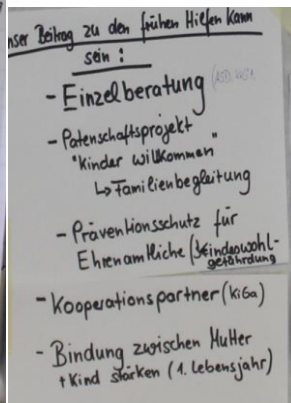 nser Beitrag zu den frühen Hilfen kann
sein :
- Einzelberatung
- Patenschaftsprojekt
"Kinder willkommen"
↳ Familienbegleitung
- Präventionsschutz für
Ehrenamtliche (Kindeswohl-
gefährdung
- Kooperationspartner (KiGa)
- Bindung zwischen Mutter
+ Kind stärken (1. Lebensjahr)